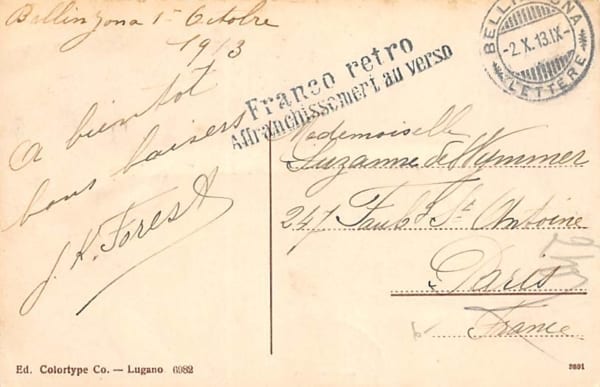 Bellinzona 1er Octobre
1913
A bientot
bons baisers
J. K. Forest
Franco retro
Affranchissement au verso
BELLINZONA
-2.X.13.IX-
LETTERE
Mademoiselle
Suzanne de Wymmer
247 Faubg St Antoine
Paris
France
Ed. Colortype Co. — Lugano 6982